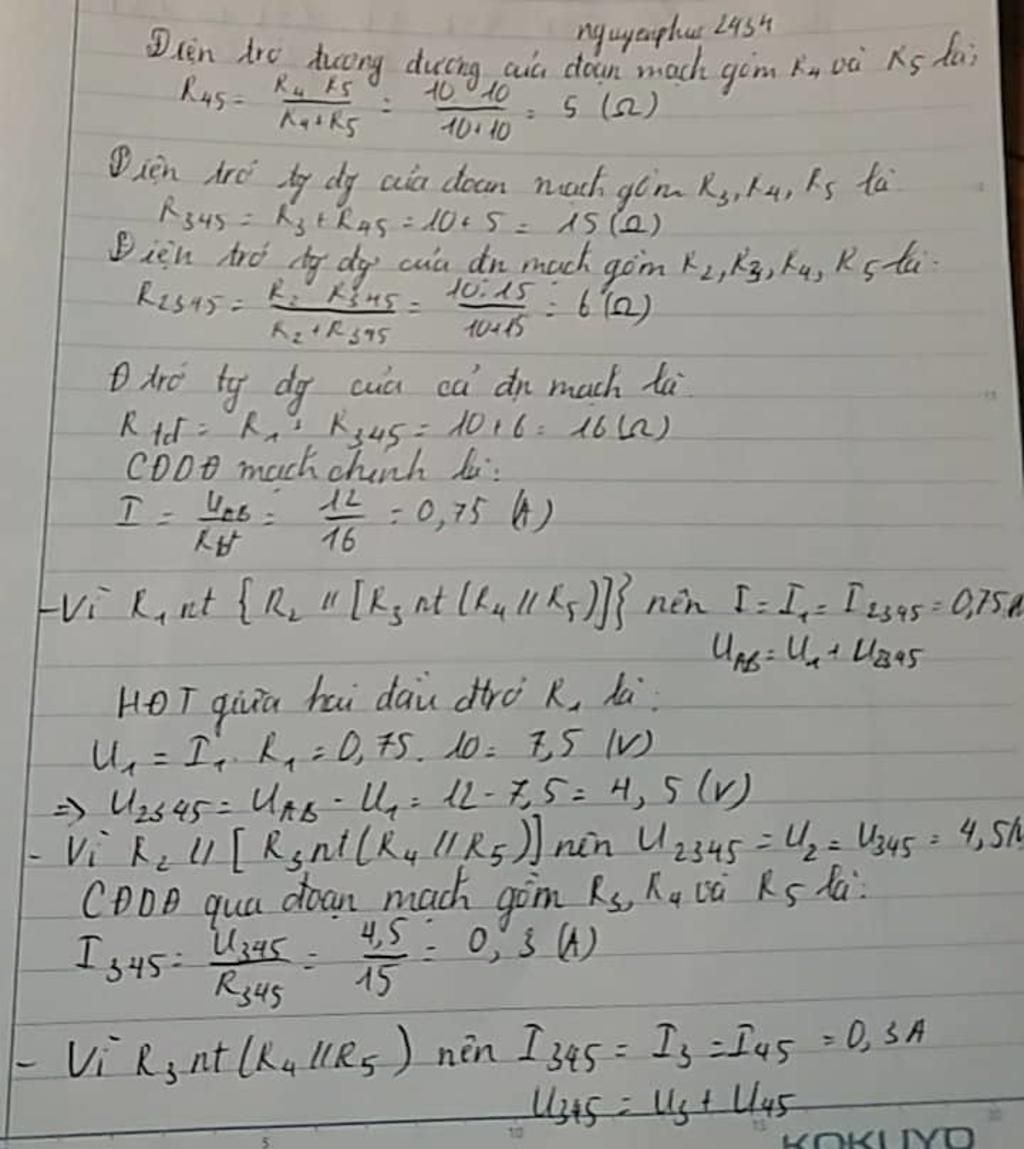 nguyenphuc 2434
Điện trở tương dương của đoạn mạch gồm R4 và R5 là:
R45 = R4 R5 / R4+R5 = 10 10 / 10+10 = 5 (Ω)
Điện trở tg dg của đoạn mạch gồm R3, R4, R5 là
R345 = R3 + R45 = 10 + 5 = 15 (Ω)
Điện trở tg dg của đn mạch gồm R2, R3, R4, R5 là:
R2345 = R2 R345 / R2+R345 = 10.15 / 10+15 = 6 (Ω)
Đ trở tg dg của cả đn mạch là
Rtđ = R1 + R345 = 10 + 6 = 16 (Ω)
CĐDĐ mạch chính là:
I = UAB / Rtđ = 12 / 16 = 0,75 (A)
- Vì R1 nt {R2 // [R3 nt (R4 // R5)]} nên I = I1 = I2345 = 0,75A
UAB = U1 + U2345
HĐT giữa hai đầu đtrở R1 là:
U1 = I1. R1 = 0,75. 10 = 7,5 (V)
=> U2345 = UAB - U1 = 12 - 7,5 = 4,5 (V)
- Vì R2 // [R3 nt (R4 // R5)] nên U2345 = U2 = U345 = 4,5V
CĐDĐ qua đoạn mạch gồm R3, R4 và R5 là:
I345 = U345 / R345 = 4,5 / 15 = 0,3 (A)
- Vì R3 nt (R4 // R5) nên I345 = I3 = I45 = 0,3A
U345 = U3 + U45
5 10 15 20
KOKUYO